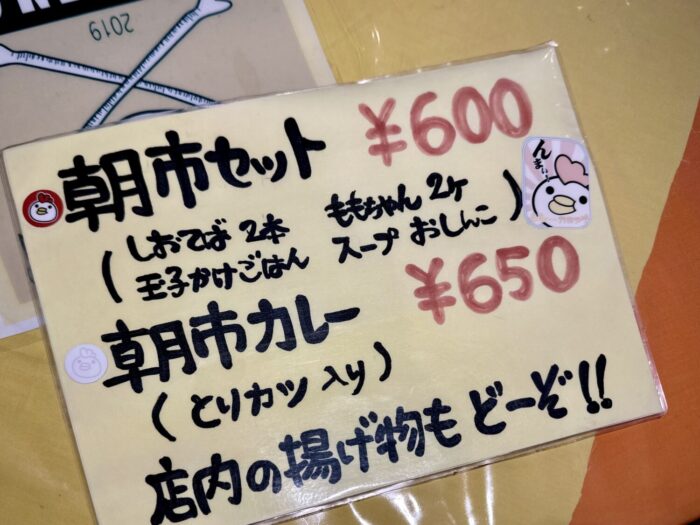 2019
朝市セット ¥600
(しおてば 2本 ももちゃん 2ヶ
玉子かけごはん スープ おしんこ)
んまいっ
朝市カレー ¥650
(とりカツ入り)
店内の揚げ物も どーぞ!!